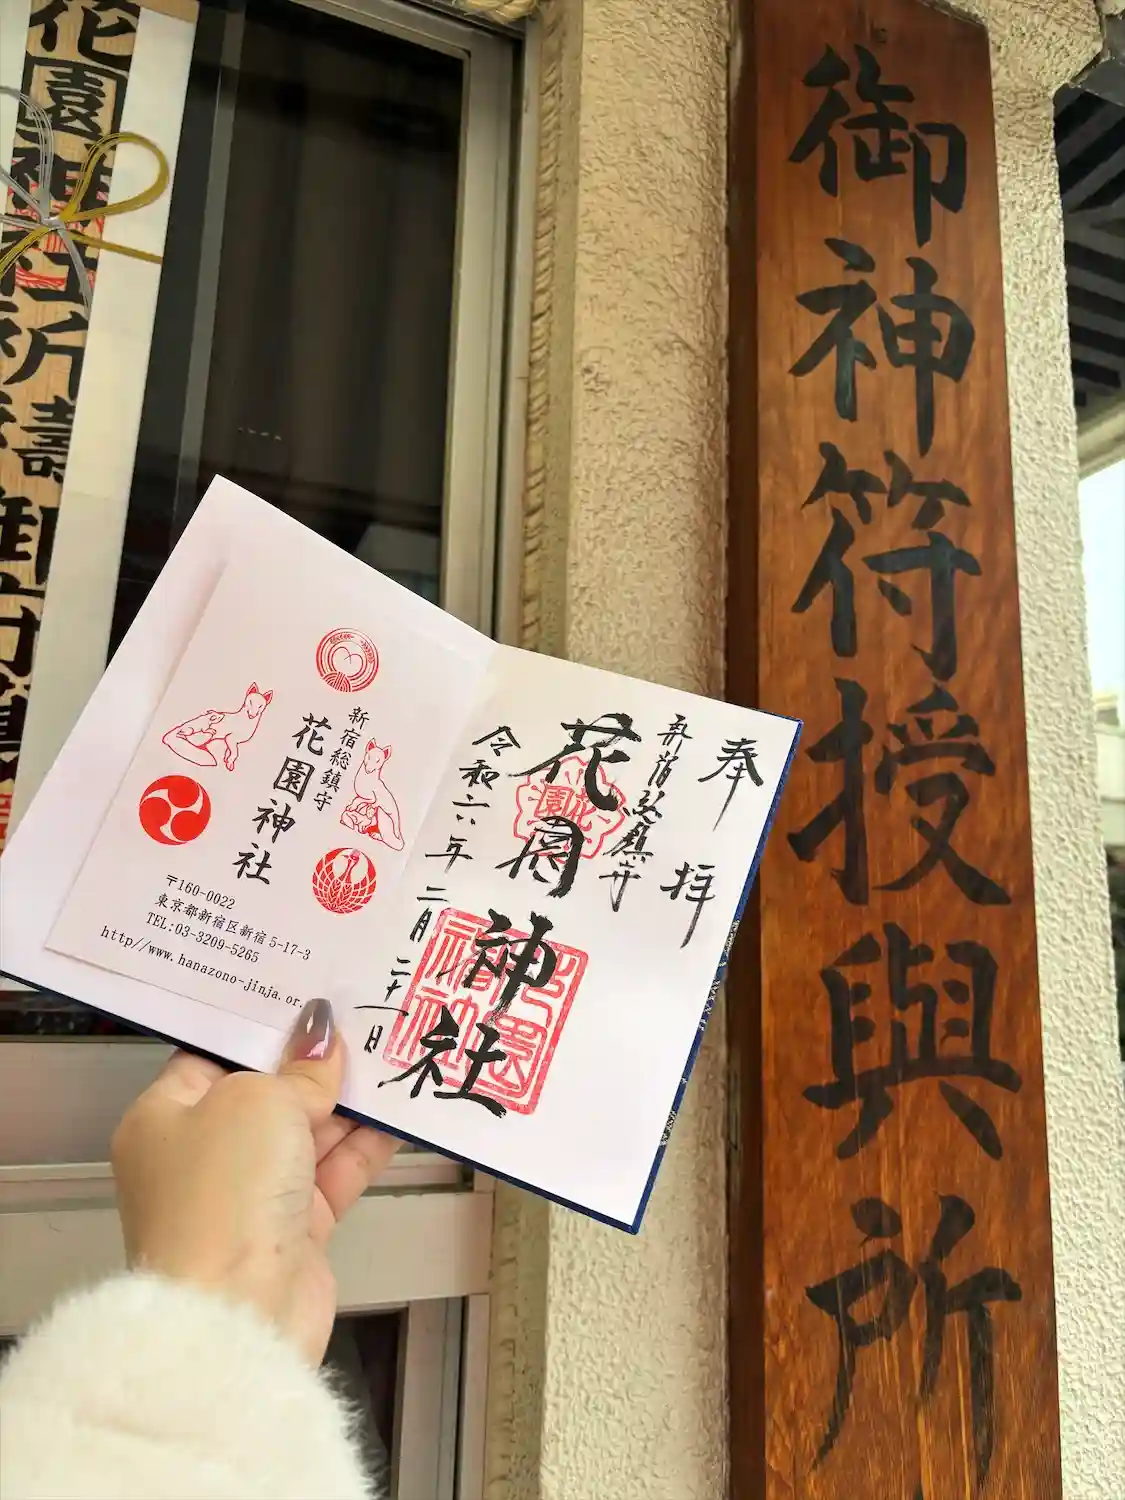 御神符授與所
奉拝
新宿総鎮守
花園神社
令和六年二月二十一日
花園
新宿総鎮守
花園神社
〒160-0022
東京都新宿区新宿5-17-3
TEL:03-3209-5265
http//www.hanazono-jinja.or.
花園神社祈